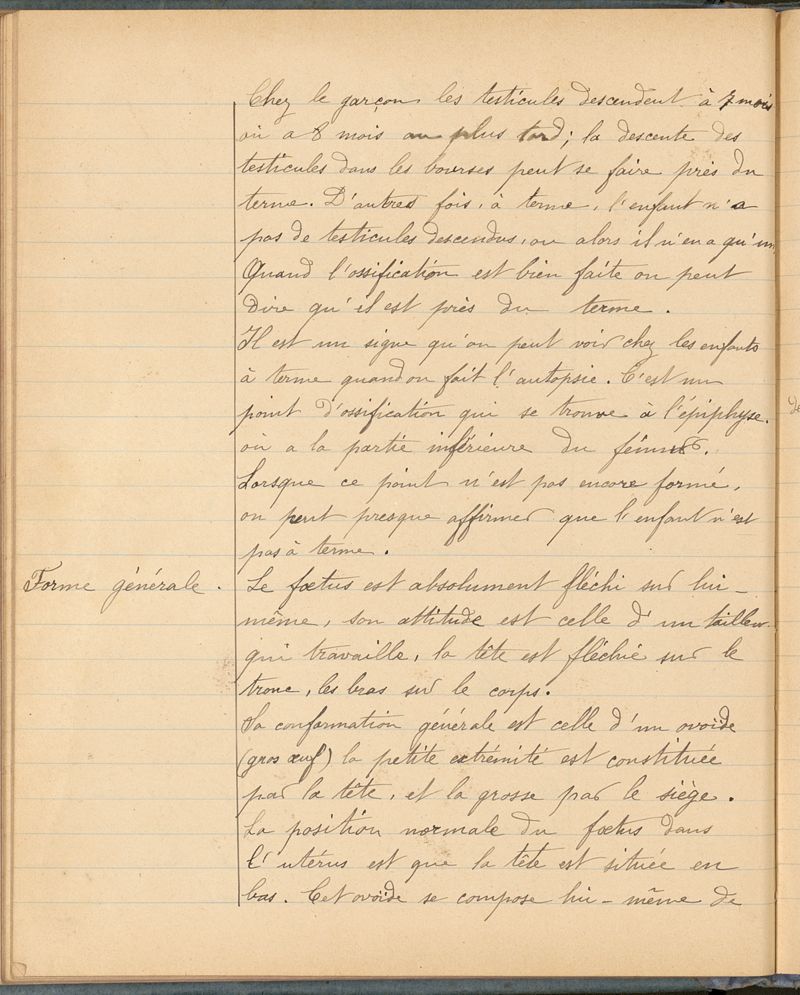 Chez le garçon les testicules descendent à 7 mois
où a 8 mois au plus tard ; la descente des
testicules dans les bourses peut se faire près du
terme. D'autres fois, à terme, l'enfant n'a
pas de testicules descendus, ou alors il n'en a qu'un.
Quand l'ossification est bien faite on peut
dire qu'il est près du terme.
Il est un signe qu'on peut voir chez les enfants
à terme quand on fait l'autopsie. C'est un
point d'ossification qui se trouve à l'épiphyse.
où a la partie inférieure du fémur.
Lorsque ce point n'est pas encore formé,
on peut presque affirmer que l'enfant n'est
pas à terme.
Forme générale. Le fœtus est absolument fléchi sur lui-
même, son attitude est celle d'un tailleur
qui travaille, la tête est fléchie sur le
tronc, les bras sur le corps.
Sa conformation générale est celle d'un ovoïde
(gros œuf) la petite extrémité est constituée
par la tête, et la grosse par le siège.
La position normale du fœtus dans
l'utérus est que la tête est située en
bas. Cet ovoïde se compose lui-même de